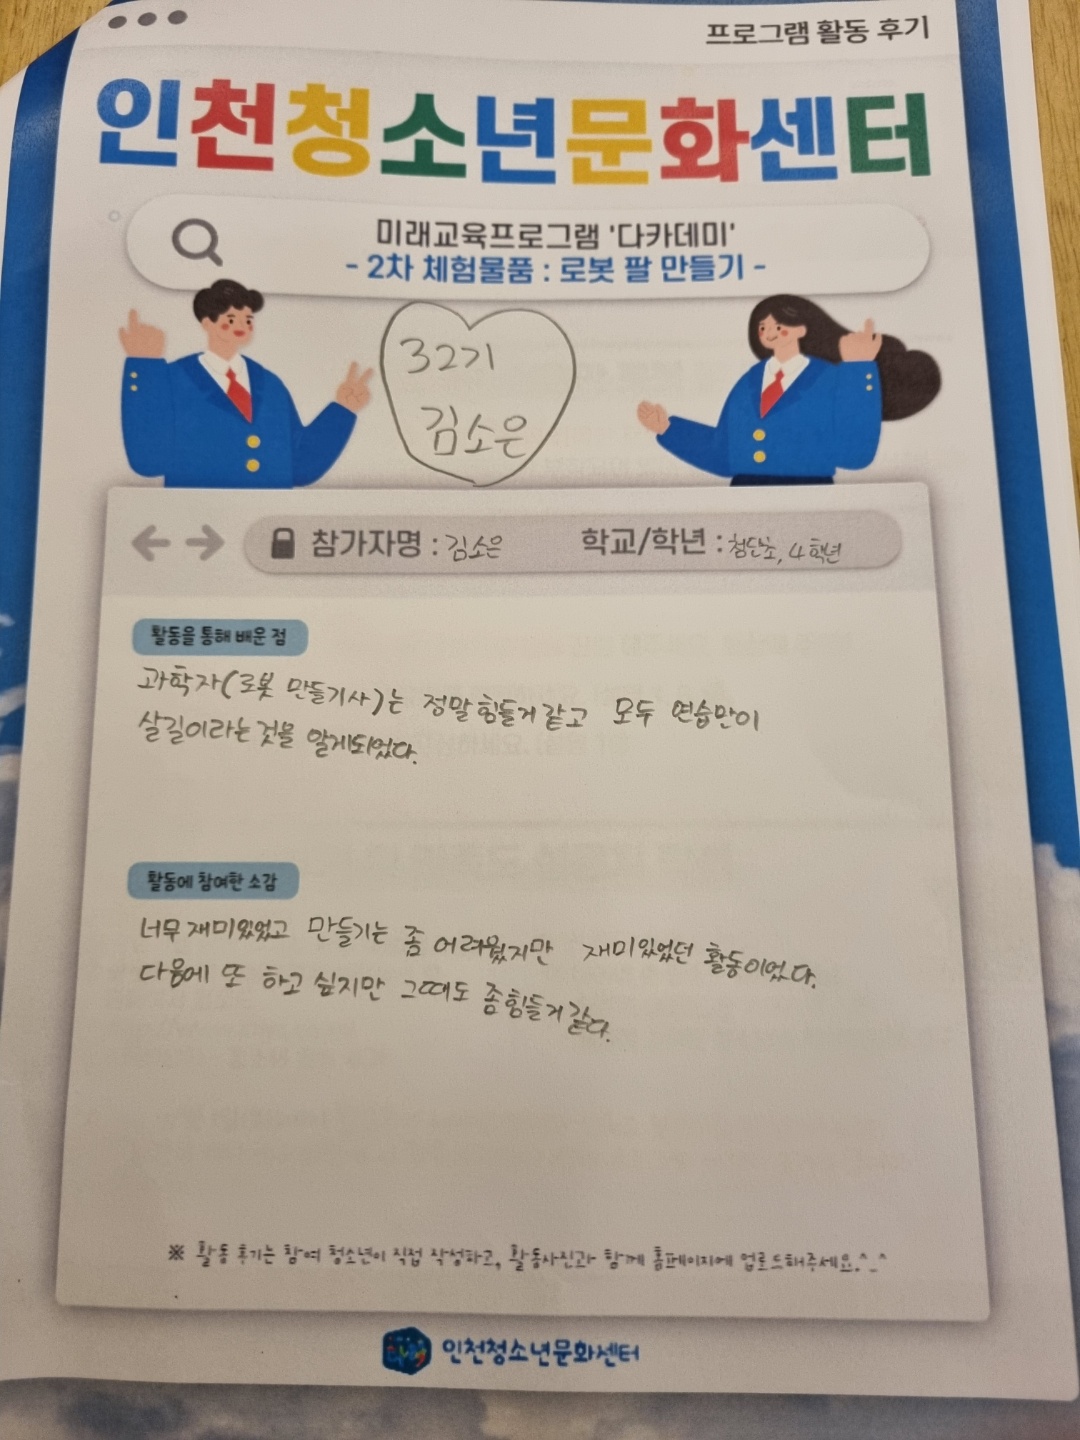 프로그램 활동 후기
인천청소년문화센터
미래교육프로그램 '다카데미'
- 2차 체험물품 : 로봇 팔 만들기 -
32기
김소은
참가자명 : 김소은 학교/학년 : 첨단초, 4학년
활동을 통해 배운 점
과학자(로봇 만들기사)는 정말 힘들거 같고 모두 연습만이
살길이라는것을 알게되었다.
활동에 참여한 소감
너무 재미있었고 만들기는 좀 어려웠지만 재미있었던 활동이었다.
다음에 또 하고 싶지만 그때도 좀 힘들거 같다.
※ 활동 후기는 참여 청소년이 직접 작성하고, 활동사진과 함께 홈페이지에 업로드해주세요.^_^
인천청소년문화센터